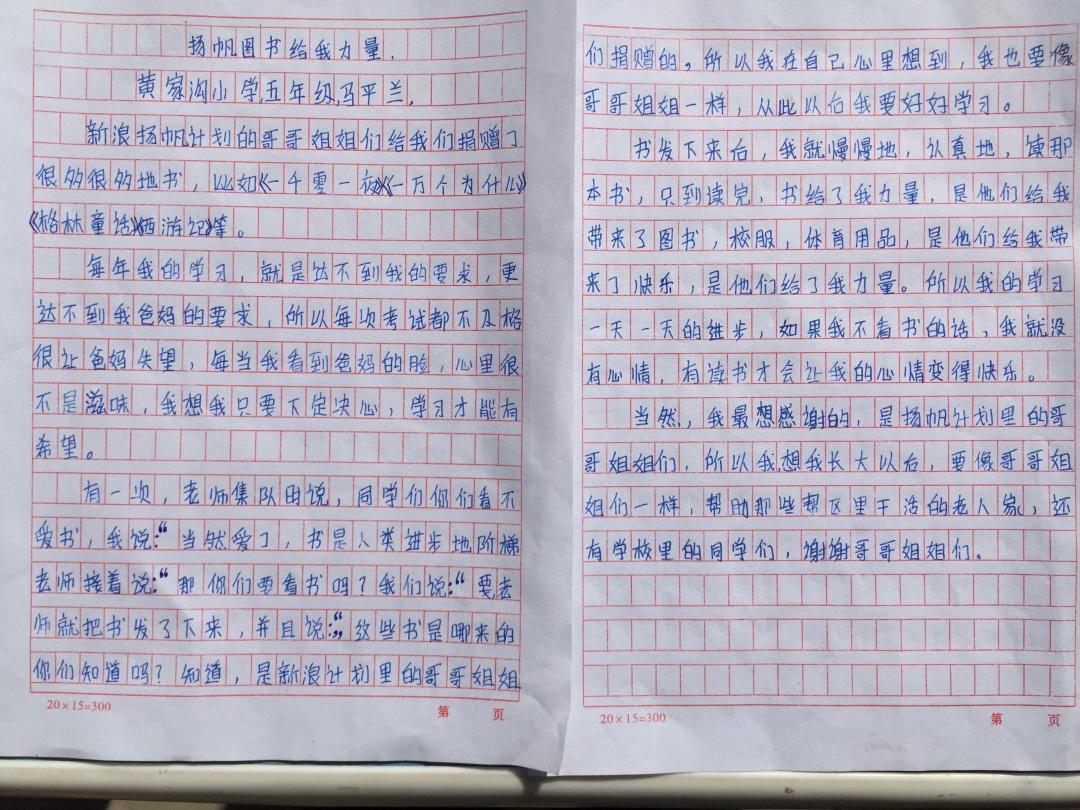 扬帆图书给我力量.
黄家沟小学,五年级,马平兰,
新浪扬帆计划的哥哥姐姐们给我们捐赠了
很多很多地书，比如《一千零一夜》《一万个为什么》
《格林童话》《西游记》等。
每年我的学习，就是达不到我的要求，更
达不到我爸妈的要求，所以每次考试都不及格
很让爸妈失望，每当我看到爸妈的脸，心里很
不是滋味，我想我只要下定决心，学习才能有
希望。
有一次，老师集队由说，同学们你们看不
爱书，我说：“当然爱了，书是人类进步地阶梯
老师接着说：“那你们要看书吗？我们说：“要,老
师就把书发了下来，并且说：“，这些书是哪来的
你们知道吗？知道，是新浪计划里的哥哥姐姐
20×15=300
第 页
们捐赠的。所以我在自己心里想到，我也要像
哥哥姐姐一样，从此以后我要好好学习。
书发下来后，我就慢慢地，认真地，读那
本书，只到读完，书给了我力量，是他们给我
带来了图书，校服，体育用品，是他们给我带
来了快乐，是他们给了我力量。所以我的学习
一天一天的进步，如果我不看书的话、我就没
有心情，有读书才会让我的心情变得快乐。
当然，我最想感谢的，是扬帆计划里的哥
哥姐姐们，所以我想我长大以后，要像哥哥姐
姐们一样，帮助那些帮区里干活的老人家，还
有学校里的同学们，谢谢哥哥姐姐们。
20×15=300
第 页